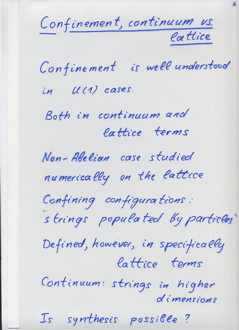 Confinement, continuum vs
lattice
Confinement is well understood
in U(1) cases.
Both in continuum and
lattice terms
Non-Abelian case studied
numerically on the lattice
Confining configurations:
"strings populated by particles"
Defined, however, in specifically
lattice terms
Continuum: strings in higher
dimensions
Is synthesis possible?